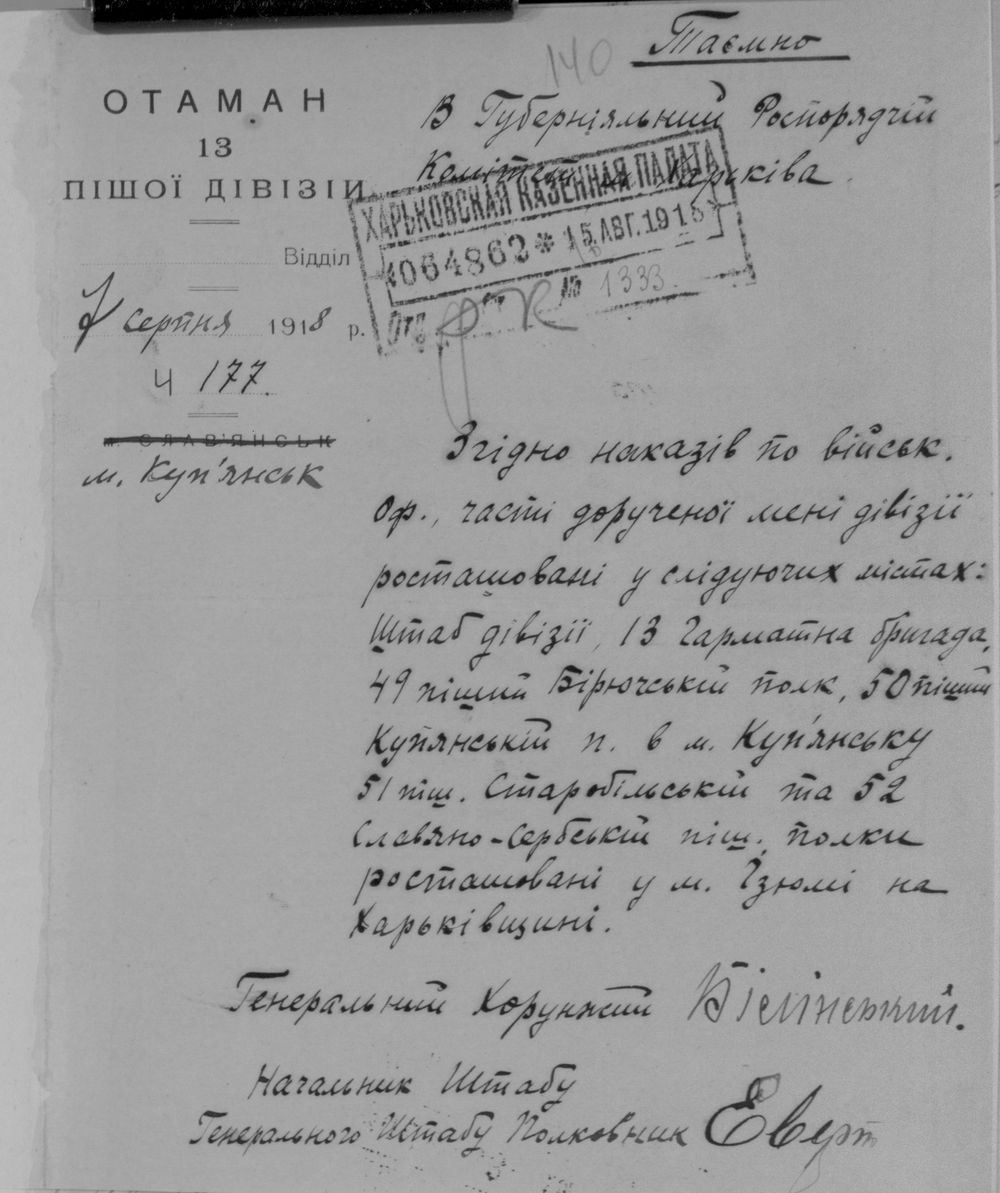 140
Таємно
ОТАМАН
13
ПІШОЇ ДІВІЗІИ
Відділ
7 серпня 1918 р.
Ч 177.
м. СЛАВ'ЯНСЬК
м. Куп'янськ
В Губерніяльний Роспорядчій
Комітет м. Харьківа.
ХАРЬКОВСКАЯ КАЗЕННАЯ ПАЛАТА
*064862* 15 АВГ. 1918
Отд. № 1333
Згідно наказів по військ.
оф., часті дорученої мені дівізії
росташовані у слідуючих містах:
Штаб дівізії, 13 Гарматна бригада,
49 піший Бірючській полк, 50 піший
Купянській п. в м. Куп'янську
51 піш. Старобільській та 52
Славяно-Сербській піш. полки
росташовані у м. Ізюмі на
Харьківщині.
Генеральний Хорунжий Білінський.
Начальник Штабу
Генерального Штабу Полковник Еверт